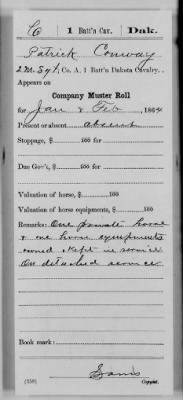 C | 1 Batt'n Cav. | Dak.
Patrick Conway
2 M. Sgt, Co. A, 1 Batt'n Dakota Cavalry.
Appears on
Company Muster Roll
for Jan & Feb, 1864
Present or absent absent
Stoppage, $ 100 for
Due Gov't, $ 100 for
Valuation of horse, $ 100
Valuation of horse equipments, $ 100
Remarks: One private horse
& one horse equipments
owned & kept in service
On detached service
Book mark:
(358)
Copyist.